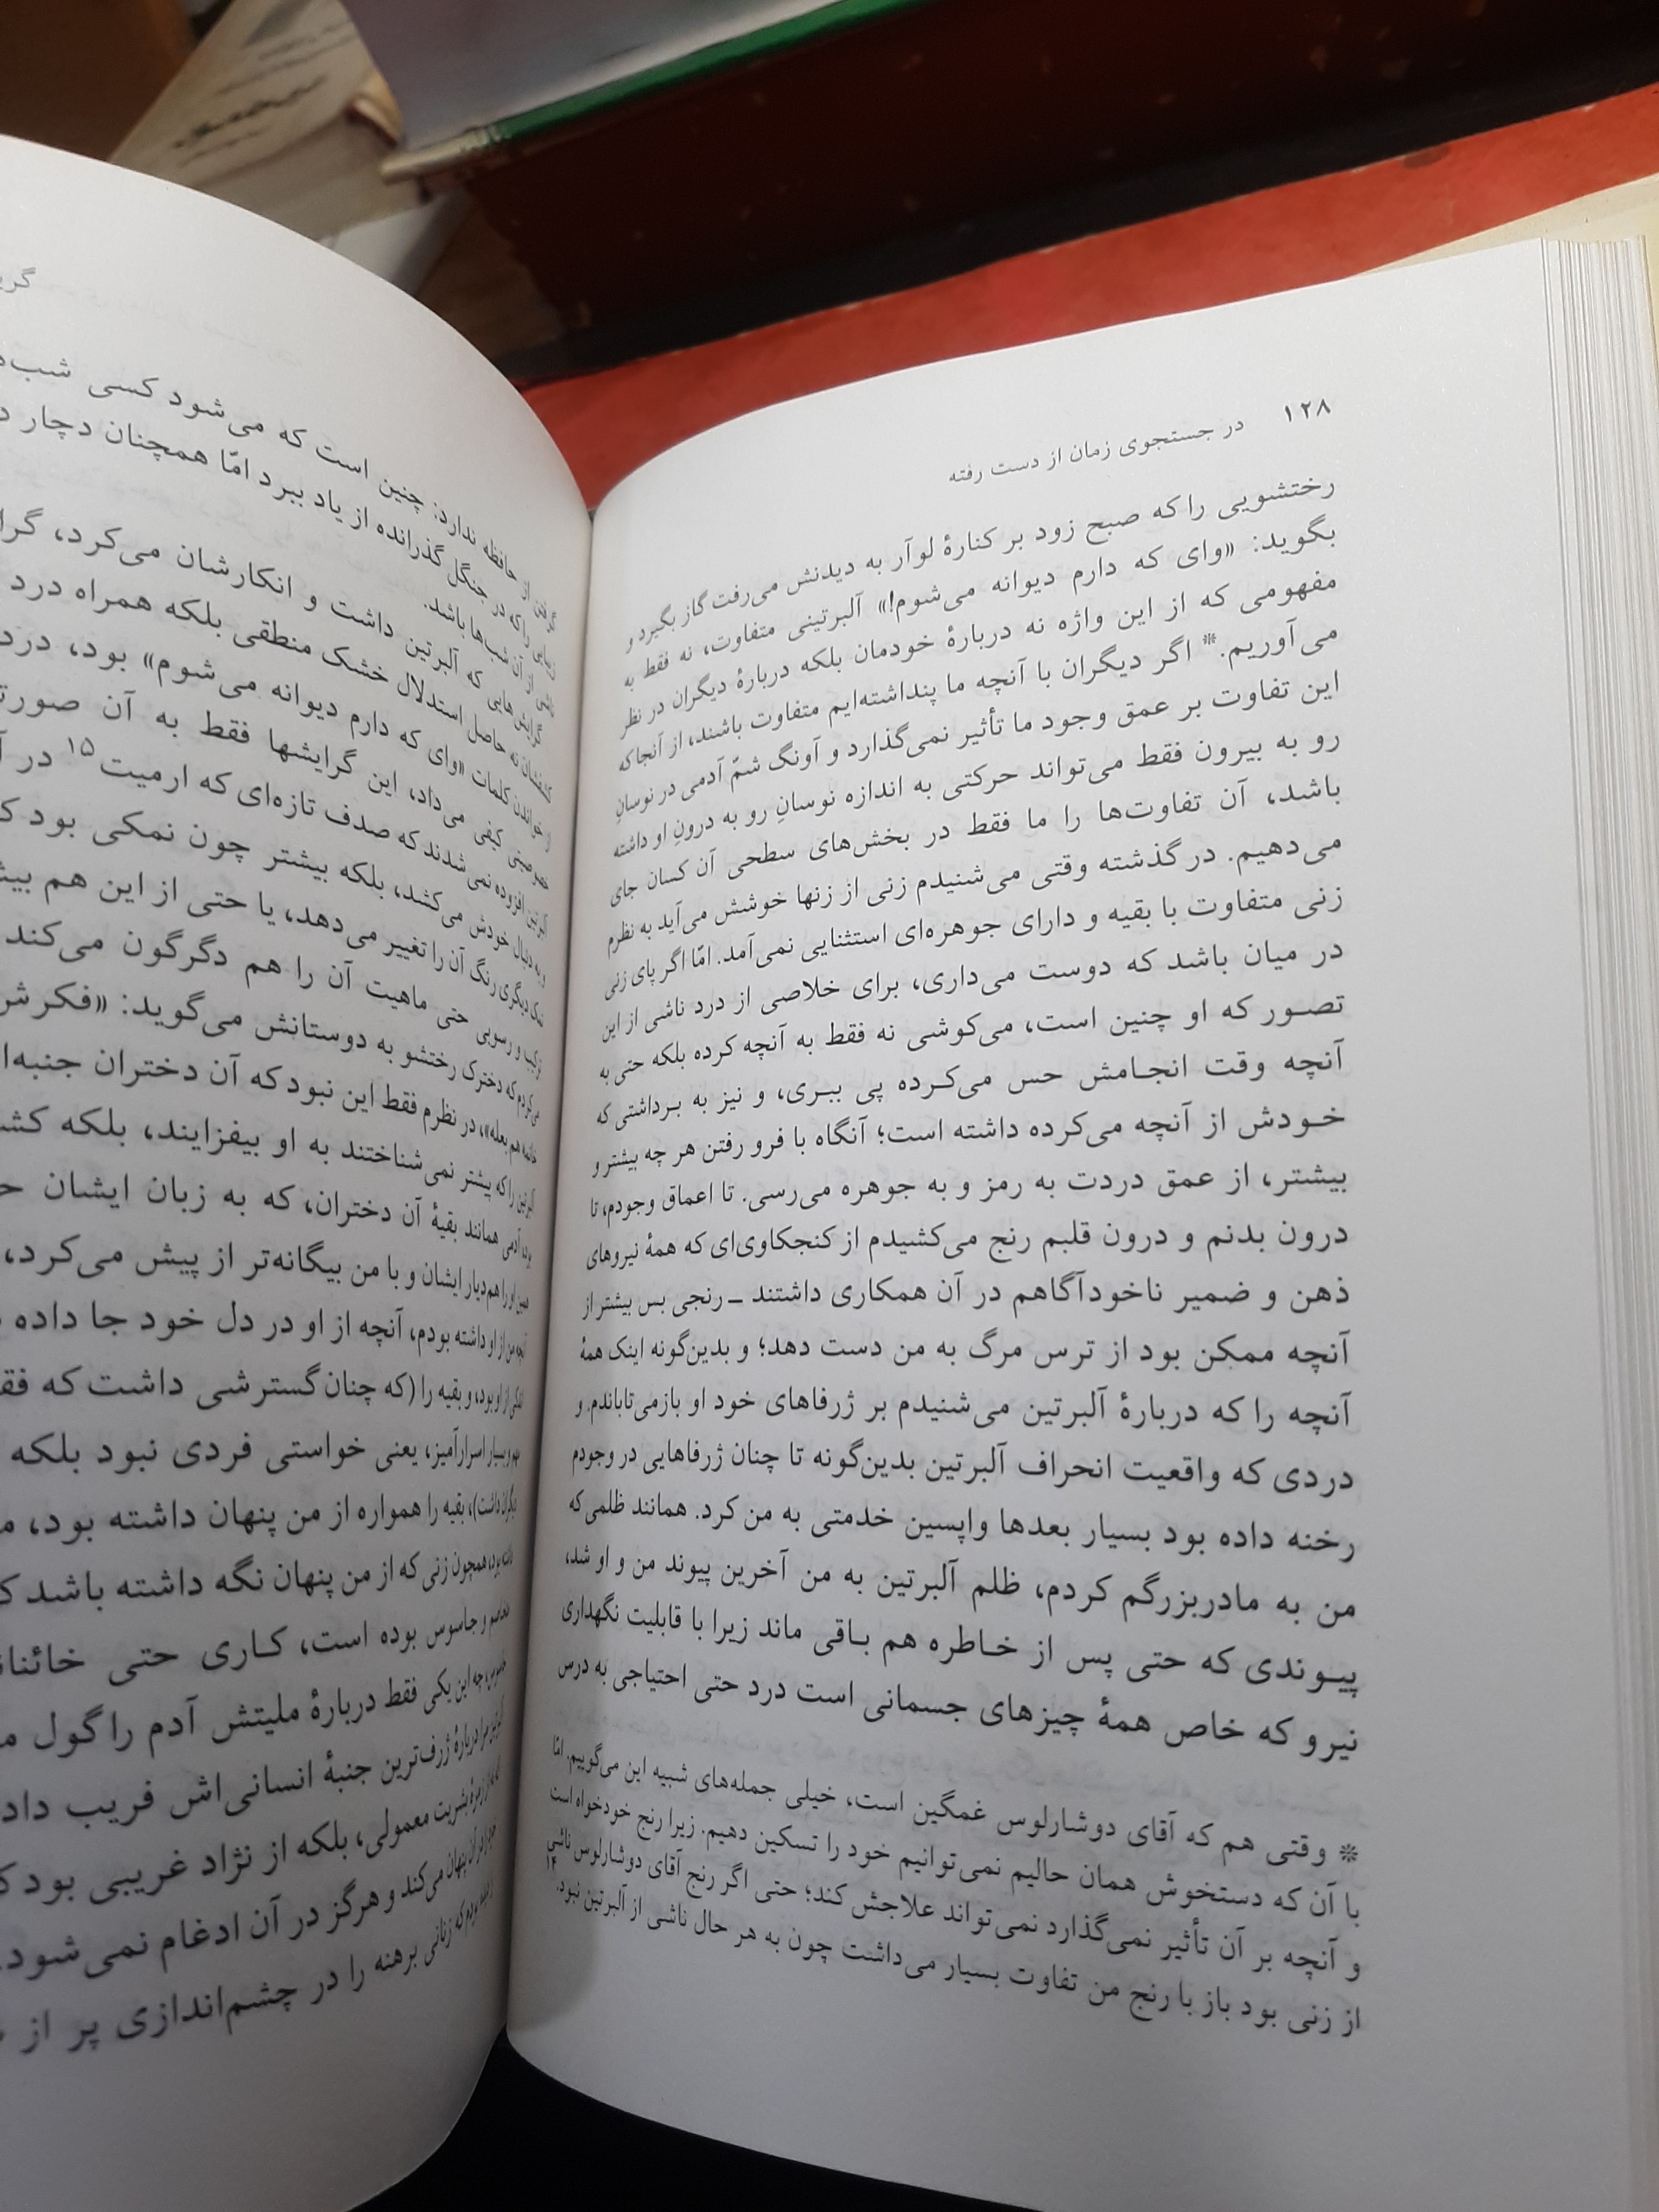 ۱۲۸ در جستجوی زمان از دست رفته
رختشویی را که صبح زود بر کنارهٔ لوآر به دیدنش می‌رفت گاز بگیرد و
بگوید: «وای که دارم دیوانه می‌شوم!» آلبرتینی متفاوت، نه فقط به
مفهومی که از این واژه نه دربارهٔ خودمان بلکه دربارهٔ دیگران در نظر
می‌آوریم.* اگر دیگران با آنچه ما پنداشته‌ایم متفاوت باشند، از آنجا که
این تفاوت بر عمق وجود ما تأثیر نمی‌گذارد و آونگ شمّ آدمی در نوسانِ
رو به بیرون فقط می‌تواند حرکتی به اندازه نوسانِ رو به درونِ او داشته
باشد، آن تفاوت‌ها را ما فقط در بخش‌های سطحی آن کسان جای
می‌دهیم. در گذشته وقتی می‌شنیدم زنی از زنها خوشش می‌آید به نظرم
زنی متفاوت با بقیه و دارای جوهره‌ای استثنایی نمی‌آمد. امّا اگر پای زنی
در میان باشد که دوست می‌داری، برای خلاصی از درد ناشی از این
تصور که او چنین است، می‌کوشی نه فقط به آنچه کرده بلکه حتی به
آنچه وقت انجامش حس می‌کرده پی ببری، و نیز به برداشتی که
خودش از آنچه می‌کرده داشته است؛ آنگاه با فرو رفتن هر چه بیشتر و
بیشتر، از عمق دردت به رمز و به جوهره می‌رسی. تا اعماق وجودم، تا
درون بدنم و درون قلبم رنج می‌کشیدم از کنجکاوی‌ای که همهٔ نیروهای
ذهن و ضمیر ناخودآگاهم در آن همکاری داشتند ــ رنجی بس بیشتر از
آنچه ممکن بود از ترس مرگ به من دست دهد؛ و بدین‌گونه اینک همهٔ
آنچه را که دربارهٔ آلبرتین می‌شنیدم بر ژرفاهای خود او بازمی‌تاباندم. و
دردی که واقعیت انحراف آلبرتین بدین‌گونه تا چنان ژرفاهایی در وجودم
رخنه داده بود بسیار بعدها واپسین خدمتی به من کرد. همانند ظلمی که
من به مادربزرگم کردم، ظلم آلبرتین به من آخرین پیوند من و او شد،
پیوندی که حتی پس از خاطره هم باقی ماند زیرا با قابلیت نگهداری
نیرو که خاص همهٔ چیزهای جسمانی است درد حتی احتیاجی به درس
* وقتی هم که آقای دوشارلوس غمگین است، خیلی جمله‌های شبیه این می‌گوییم. امّا
با آن که دستخوش همان حالیم نمی‌توانیم خود را تسکین دهیم. زیرا رنج خودخواه است
و آنچه بر آن تأثیر نمی‌گذارد نمی‌تواند علاجش کند؛ حتی اگر رنج آقای دوشارلوس ناشی
از زنی بود باز با رنج من تفاوت بسیار می‌داشت چون به هر حال ناشی از آلبرتین نبود.۱۴
حافظه ندارد: چنین است که می‌شود کسی
را که در جنگل گذرانده از یاد ببرد امّا همچنان دچار
از آن شب‌ها باشد.
گرایش‌هایی که آلبرتین داشت و انکارشان می‌کرد،
نه حاصل استدلال خشک منطقی بلکه همراه درد
از خواندن کلمات «وای که دارم دیوانه می‌شوم» بود، درد
کیفی می‌داد، این گرایشها فقط به آن
افزوده نمی‌شدند که صدف تازه‌ای که ارمیت۱۵ در
و به دنبال خودش می‌کشد، بلکه بیشتر چون نمکی بود
دیگری رنگ آن را تغییر می‌دهد، یا حتی از این هم
و رسوبی حتی ماهیت آن را هم دگرگون می‌کند
که دخترک رختشو به دوستانش می‌گوید:
در نظرم فقط این نبود که آن دختران
را که پیشتر نمی‌شناختند به او بیفزایند، بلکه
آدمی همانند بقیهٔ آن دختران، که به زبان ایشان
او را هم‌دیار ایشان و با من بیگانه‌تر از پیش می‌کرد،
من از او داشته بودم، آنچه از او در دل خود جا داده
از او بود، و بقیه را (که چنان گسترشی داشت که
و بسیار اسرارآمیز، یعنی خواستی فردی نبود بلکه
داشت)، بقیه را همواره از من پنهان داشته بود،
همچون زنی که از من پنهان نگه داشته باشد
و جاسوس بوده است، کاری حتی
چه این یکی فقط دربارهٔ ملیتش آدم را گول
مرا دربارهٔ ژرف‌ترین جنبهٔ انسانی‌اش فریب
بشریت معمولی، بلکه از نژاد غریبی بود
پنهان می‌کند و هرگز در آن ادغام نمی‌شود.
که زنانی برهنه را در چشم‌اندازی پر از